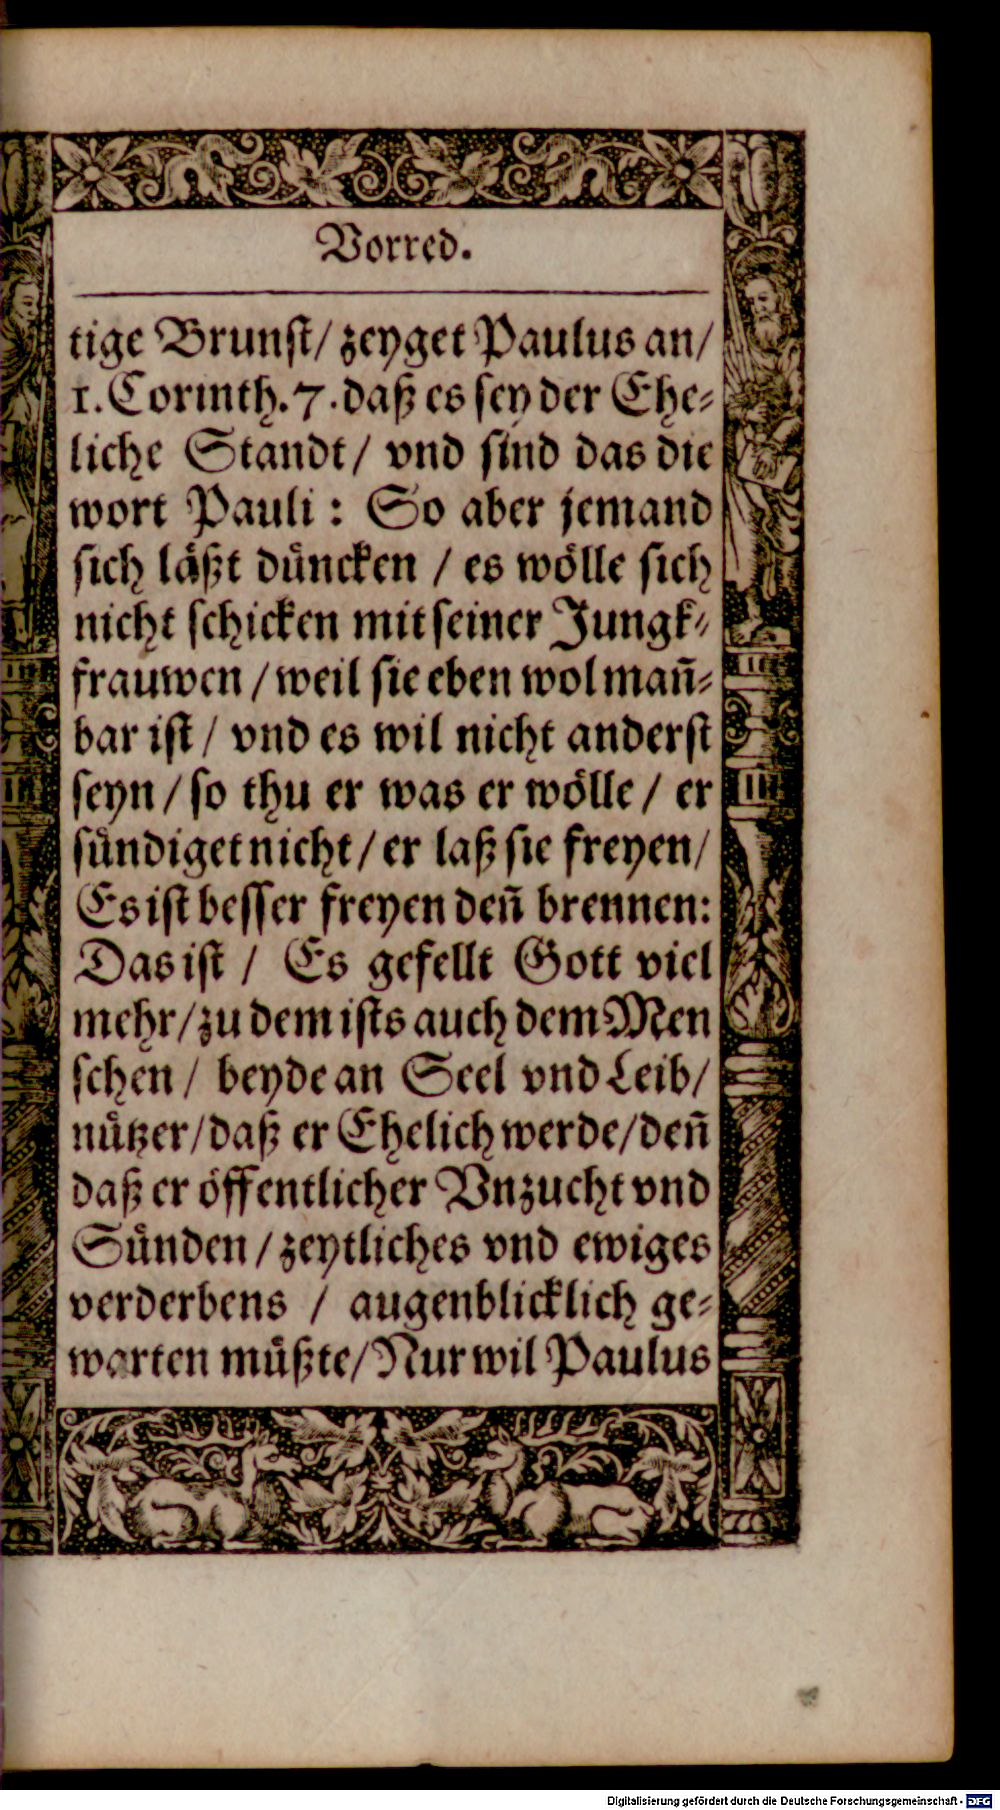 Vorred.
tige Brunst/ zeyget Paulus an/
1. Corinth. 7. daß es sey der Ehe⸗
liche Standt/ vnd sind das die
wort Pauli: So aber jemand
sich läßt düncken / es wölle sich
nicht schicken mit seiner Jungk⸗
frauwen / weil sie eben wol mañ⸗
bar ist / vnd es wil nicht anderst
seyn / so thu er was er wölle / er
sündiget nicht / er laß sie freyen/
Es ist besser freyen deñ brennen:
Das ist / Es gefellt Gott viel
mehr/zu dem ists auch dem Men
schen / beyde an Seel vnd Leib/
nützer/daß er Ehelich werde/deñ
daß er öffentlicher Vnzucht vnd
Sünden / zeytliches vnd ewiges
verderbens / augenblicklich ge⸗
warten müßte/ Nur wil Paulus
Digitalisierung gefördert durch die Deutsche Forschungsgemeinschaft - DFG